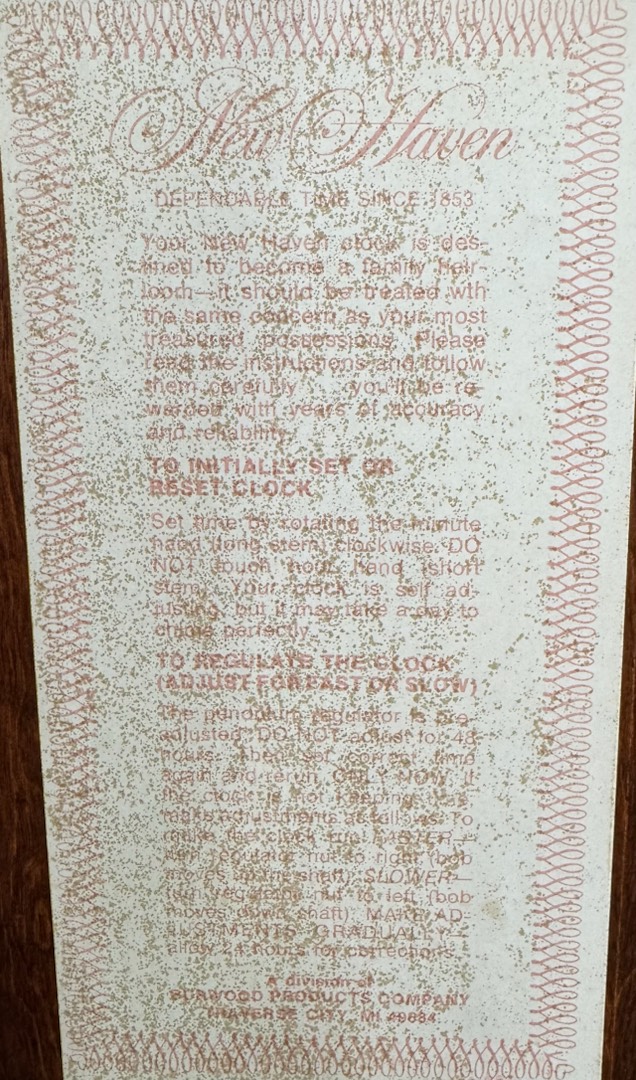 New Haven
DEPENDABLE TIME SINCE 1853
Your New Haven clock is des-
tined to become a family heir-
loom—it should be treated wth
the same concern as your most
treasured possessions. Please
read the instructions and follow
them carefully . . . you'll be re-
warded with years of accuracy
and reliability.
TO INITIALLY SET OR
RESET CLOCK
Set time by rotating the minute
hand (long stem) clockwise. DO
NOT touch hour hand (short
stem). Your clock is self ad-
justing, but it may take a day to
chime perfectly.
TO REGULATE THE CLOCK
(ADJUST FOR FAST OR SLOW)
The pendulum regulator is pre-
adjusted. DO NOT adjust for 48
hours, then set correct time
again and rerun. ONLY NOW, if
the clock is not keeping time,
make adjustments as follows: To
make the clock run FASTER—
turn regulator nut to right (bob
moves up the shaft). SLOWER—
turn regulator nut to left (bob
moves down shaft). MAKE AD-
JUSTMENTS GRADUALLY—
allow 24 hours for corrections.
A division of
BURWOOD PRODUCTS COMPANY
TRAVERSE CITY, MI 49684